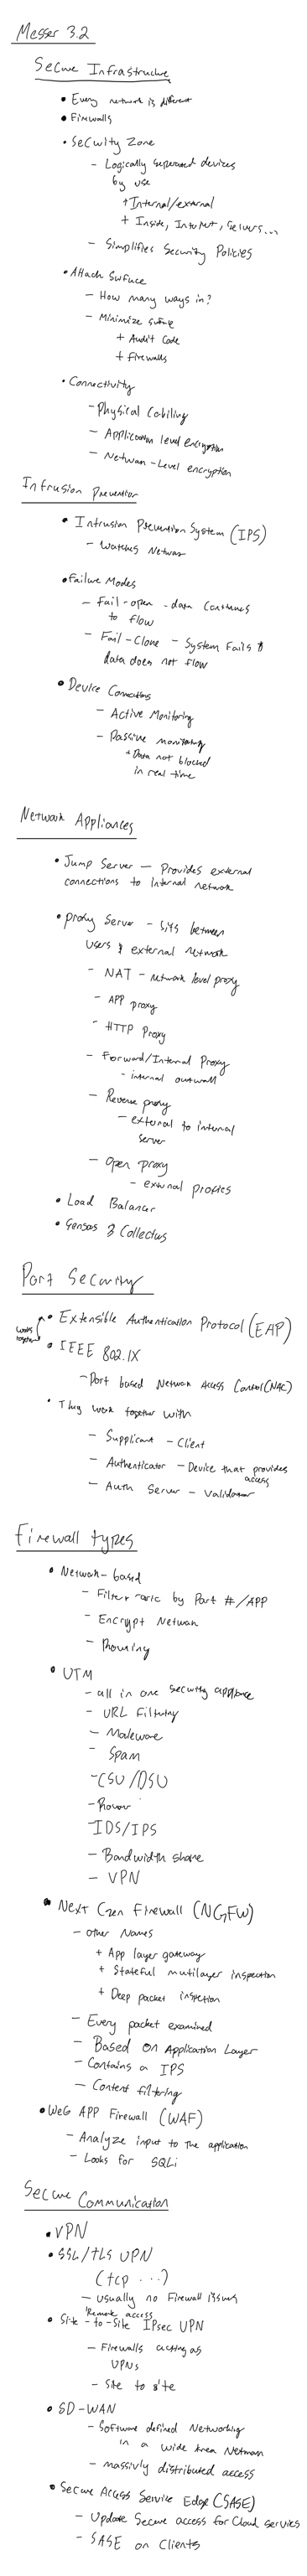 Messer 3.2
Secure Infrastructure
• Every network is different
• Firewalls
• Security Zone
– Logically seperated devices
by use
+ Internal/external
+ Inside, Internet, Servers...
– Simplifies Security Policies
• Attack Surface
– How many ways in?
– Minimize surface
+ Audit Code
+ firewalls
• Connectivity
– Physical Cabiling
– Application level encryption
– Network-Level encryption
Intrusion Prevention
• Intrusion Prevention System (IPS)
– Watches Network
• Failure Modes
– Fail-open - data Continues
to flow
– Fail-Close – System Fails &
data does not flow
• Device Connections
– Active Monitoring
– Passive monitoring
+ Data not blocked
in real time
Network Appliances
• Jump Server – Provides external
connections to Internal network
• Proxy Server – sits between
users & external network
– NAT – network level proxy
– APP proxy
– HTTP Proxy
– Forward/Internal Proxy
– internal outward
– Reverse proxy
– external to internal
server
– Open proxy
– external proxies
• Load Balancer
• Sensors & Collectors
Port Security
• Extensible Authentication Protocol (EAP)
works
together
• IEEE 802.1X
– Port based Network Access Control (NAC)
• They work together with
– Supplicant – Client
– Authenticator – Device that provides
access
– Auth Server – Validator
Firewall types
• Network-based
– Filter traffic by Port #/APP
– Encrypt Network
– Routing
• UTM
– all in one security appliance
– URL Filtering
– Maleware
– Spam
– CSU/DSU
– Router
– IDS/IPS
– Bandwidth shape
– VPN
• Next Gen Firewall (NGFW)
– Other Names
+ App layer gateway
+ Stateful mutilayer inspection
+ Deep packet inspetion
– Every packet examined
– Based on Application Layer
– Contains a IPS
– Content filtering
• Web APP Firewall (WAF)
– Analyze input to the application
– Looks for SQLi
Secure Communication
• VPN
• SSL/TLS VPN
(tcp ...)
– usually no Firewall issues
– Remote access
• Site-to-Site IPsec VPN
– Firewalls acting as
VPNs
– Site to site
• SD-WAN
– Software defined Networking
in a wide Area Network
– massivly distributed access
• Secure Access Service Edge (SASE)
– Update Secure access for Cloud services
– SASE on Clients